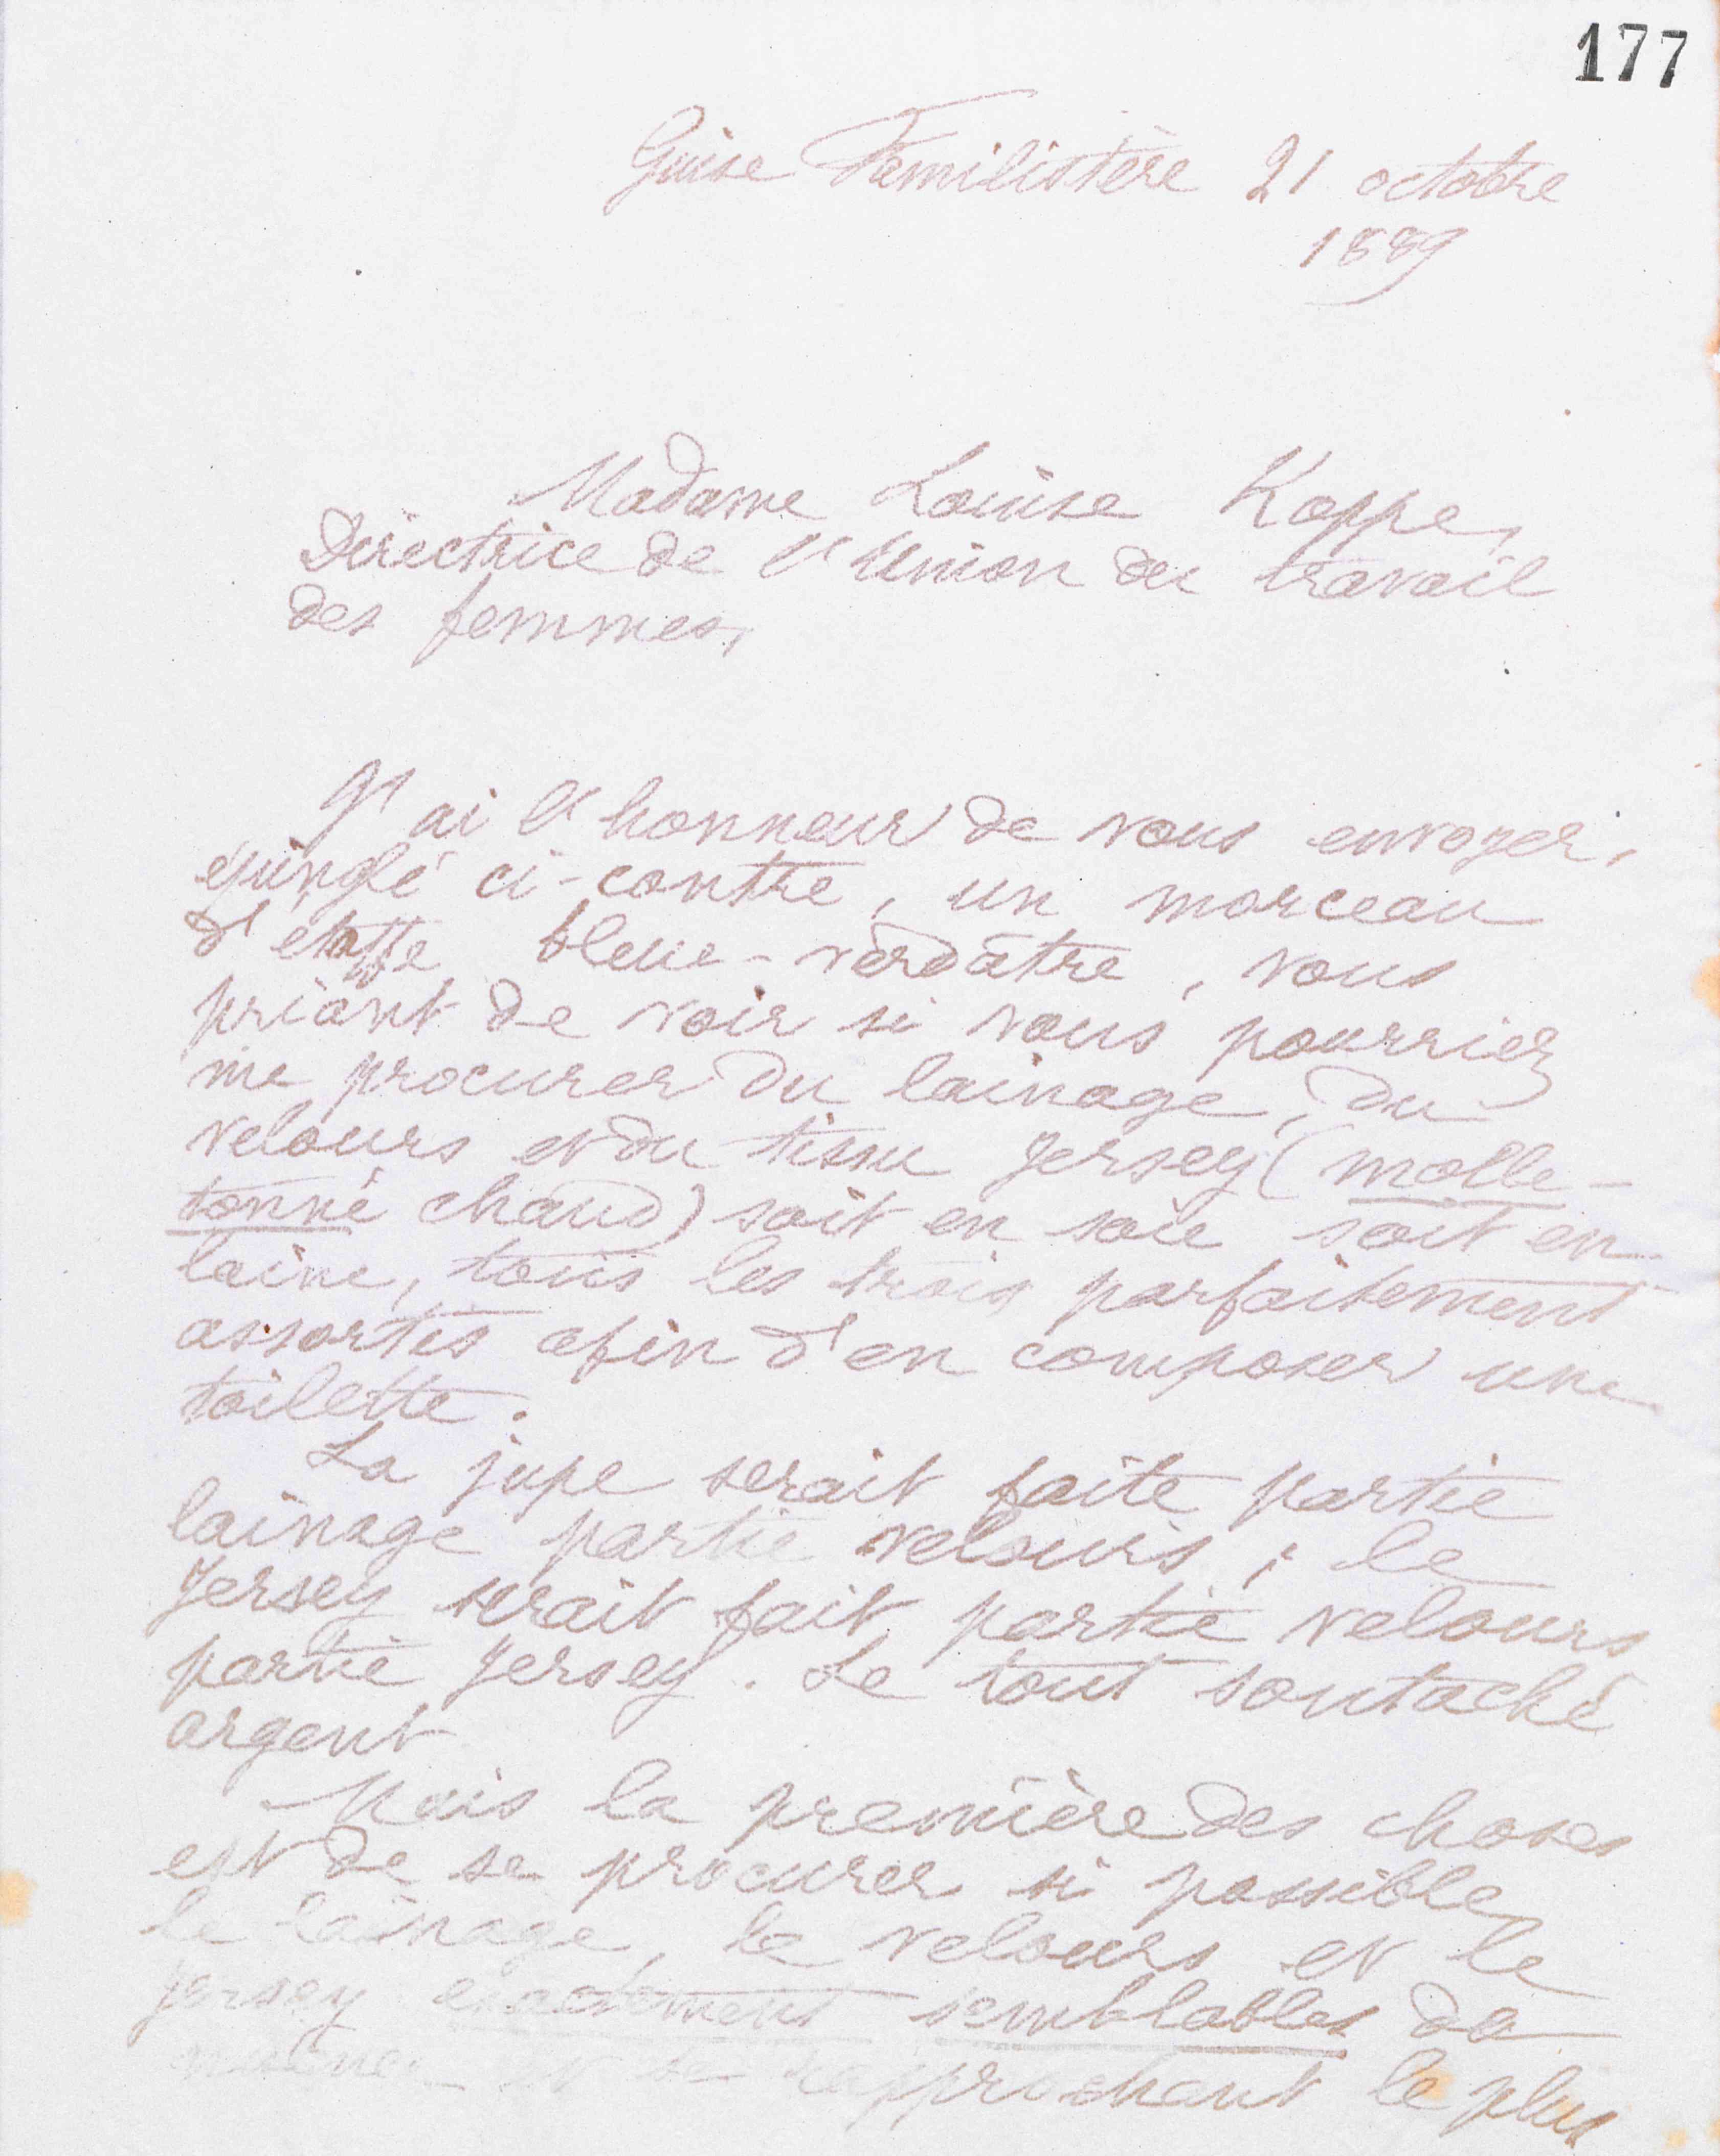 177
Guise Familistère 21 octobre
1889
Madame Louise Koppe,
Directrice de l'Union du travail
des femmes,
J'ai l'honneur de vous envoyer,
épinglé ci-contre, un morceau
d'etoffe bleue-verdâtre, vous
priant de voir si vous pourriez
me procurer du lainage, du
velours et du tissu Jersey (molle-
tonné chaud) soit en soie soit en
laine, tous les trois parfaitement
assortis afin d'en composer une
toilette.
La jupe serait faite partie
lainage partie velours; le
Jersey serait fait partie velours
partie Jersey. Le tout soutaché
argent
Mais la première des choses
est de se procurer si possible
le lainage, le velours et le
Jersey exactement semblables de
et se rapprochant le plus